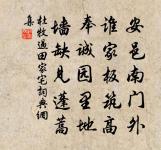 安邑南门外
谁家板筑高
奉诚园里地
墙缺见蓬蒿
杜牧过田家宅词典网
集